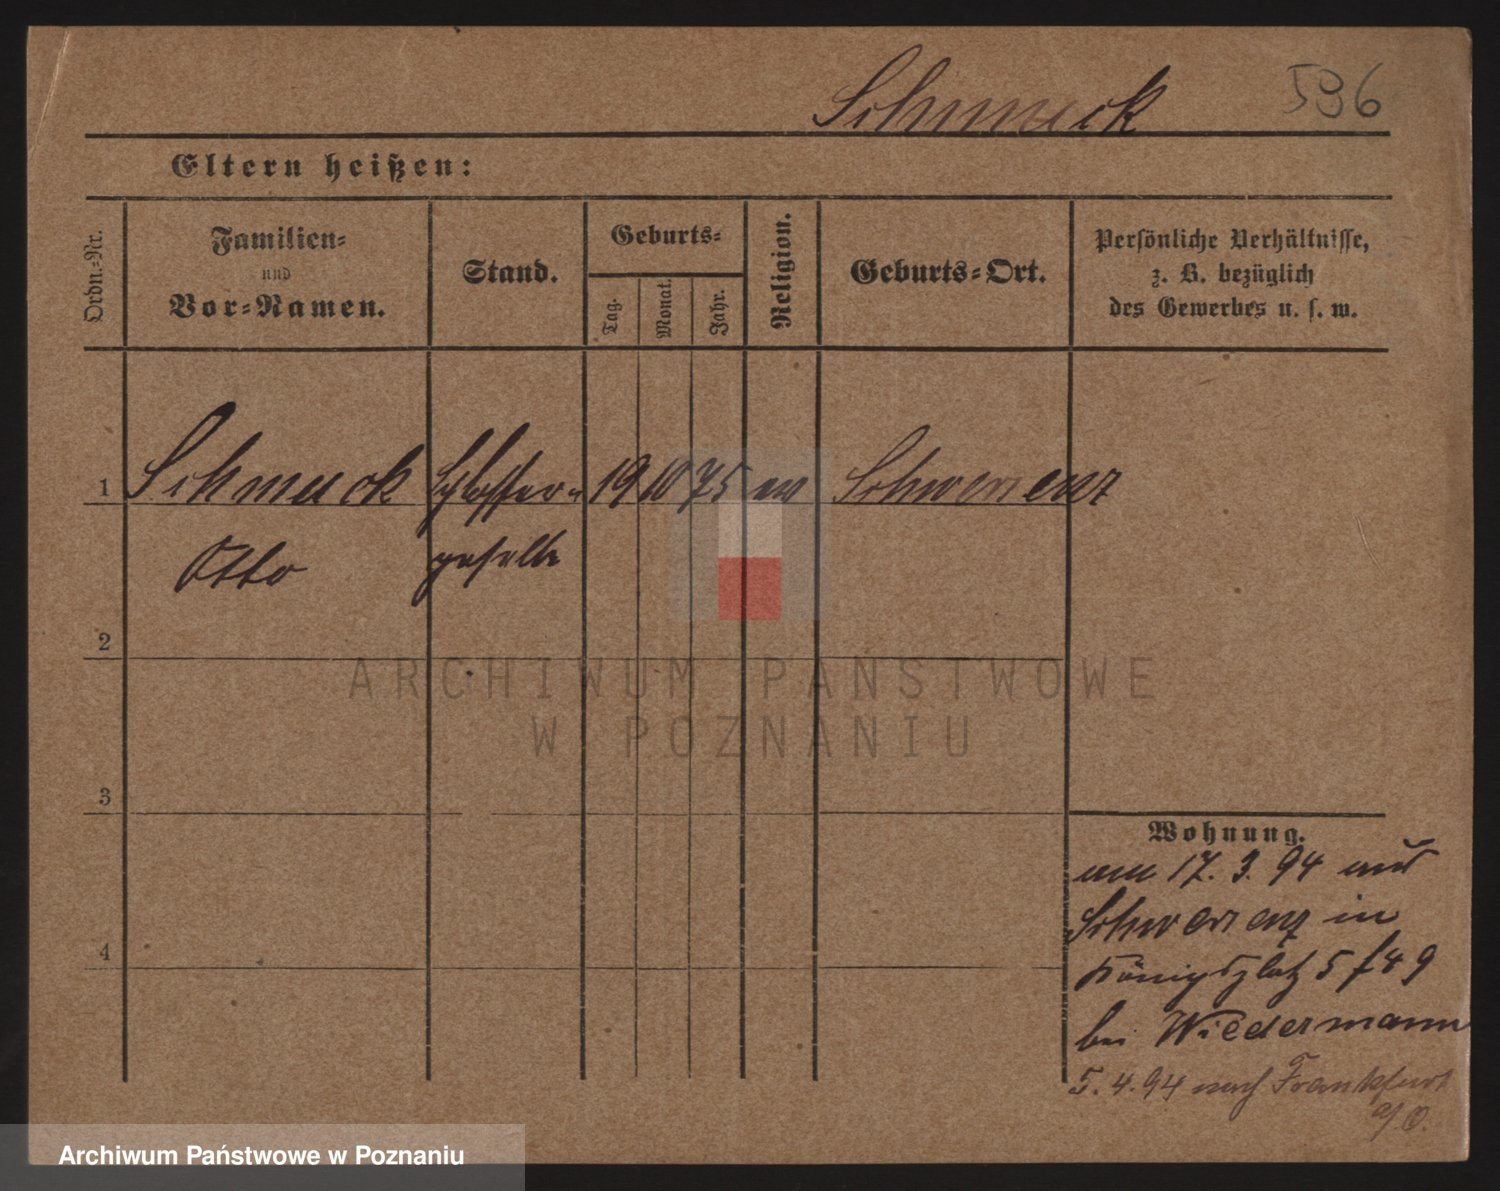 Schmuck 596
Eltern heißen:
Ordn.-Nr.
Familien-
und
Vor-Namen.
Stand.
Geburts-
Tag.
Monat.
Jahr.
Religion.
Geburts-Ort.
Persönliche Verhältnisse,
z. B. bezüglich
des Gewerbes u. s. w.
1 Schmuck Schlosser- 19 10 75 ev Schwersenz
Otto geselle
2
3
4
Wohnung.
am 17. 3. 94 aus
Schwersenz in
Königsplatz 5
bei Wiedermann
5. 4. 94 nach Frankfurt
a/O.
ARCHIWUM PAŃSTWOWE
W POZNANIU
Archiwum Państwowe w Poznaniu